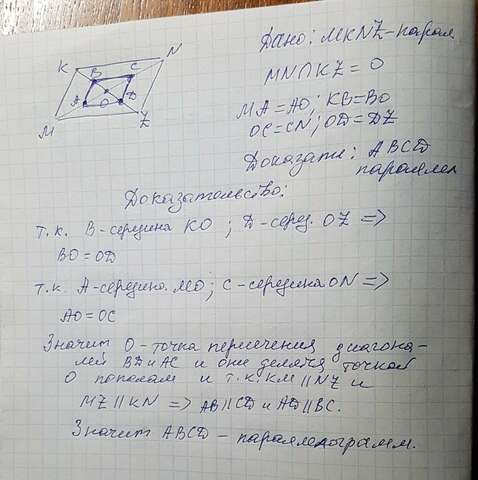 K B C N
A O D
M Z
Дано: MKNZ-парал
MN∩KZ = O
MA=AO; KB=BO
OC=CN; OD=DZ
Доказать: ABCD
параллел
Доказательство:
т.к. B-середина KO ; D-серед. OZ =>
BO=OD
т.к. A-середина MO; C-середина ON =>
AO=OC
Значит O-точка пересечения диагона-
лей BD и AC и они делятся точкой
O пополам и т.к. KM || NZ и
MZ || KN => AB||CD и AD||BC.
Значит ABCD - параллелограмм.